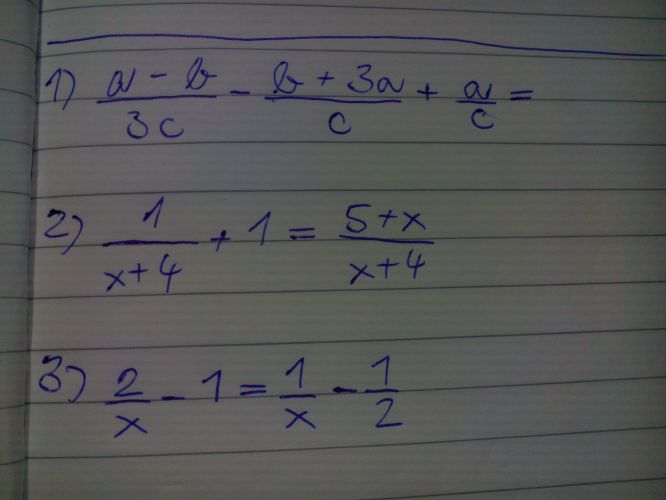 1) (a - b)/(3c) - (b + 3a)/c + a/c =
2) 1/(x+4) + 1 = (5+x)/(x+4)
3) 2/x - 1 = 1/x - 1/2